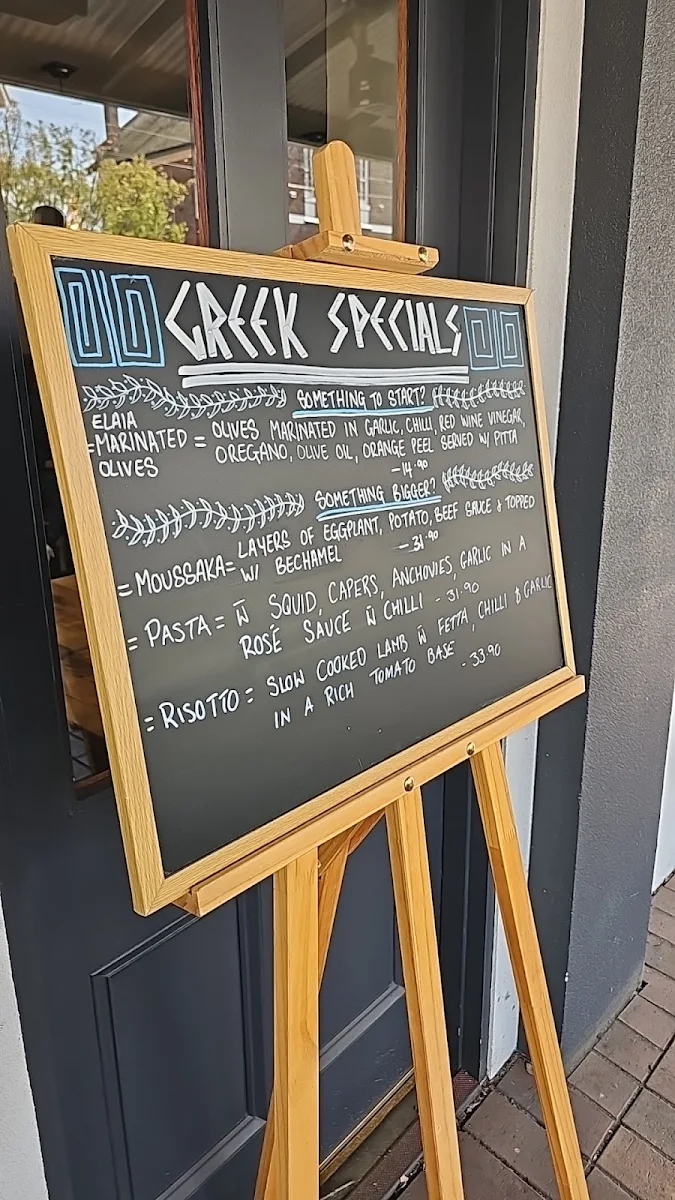 GREEK SPECIALS
SOMETHING TO START?
ELAIA
=MARINATED = OLIVES MARINATED IN GARLIC, CHILLI, RED WINE VINEGAR,
OLIVES OREGANO, OLIVE OIL, ORANGE PEEL SERVED W/ PITTA
-14.90
SOMETHING BIGGER?
=MOUSSAKA= LAYERS OF EGGPLANT, POTATO, BEEF SAUCE & TOPPED
W/ BECHAMEL -31.90
=PASTA= W̄ SQUID, CAPERS, ANCHOVIES, GARLIC IN A
ROSÉ SAUCE W̄ CHILLI -31.90
=RISOTTO= SLOW COOKED LAMB W̄ FETTA, CHILLI & GARLIC
IN A RICH TOMATO BASE -33.90